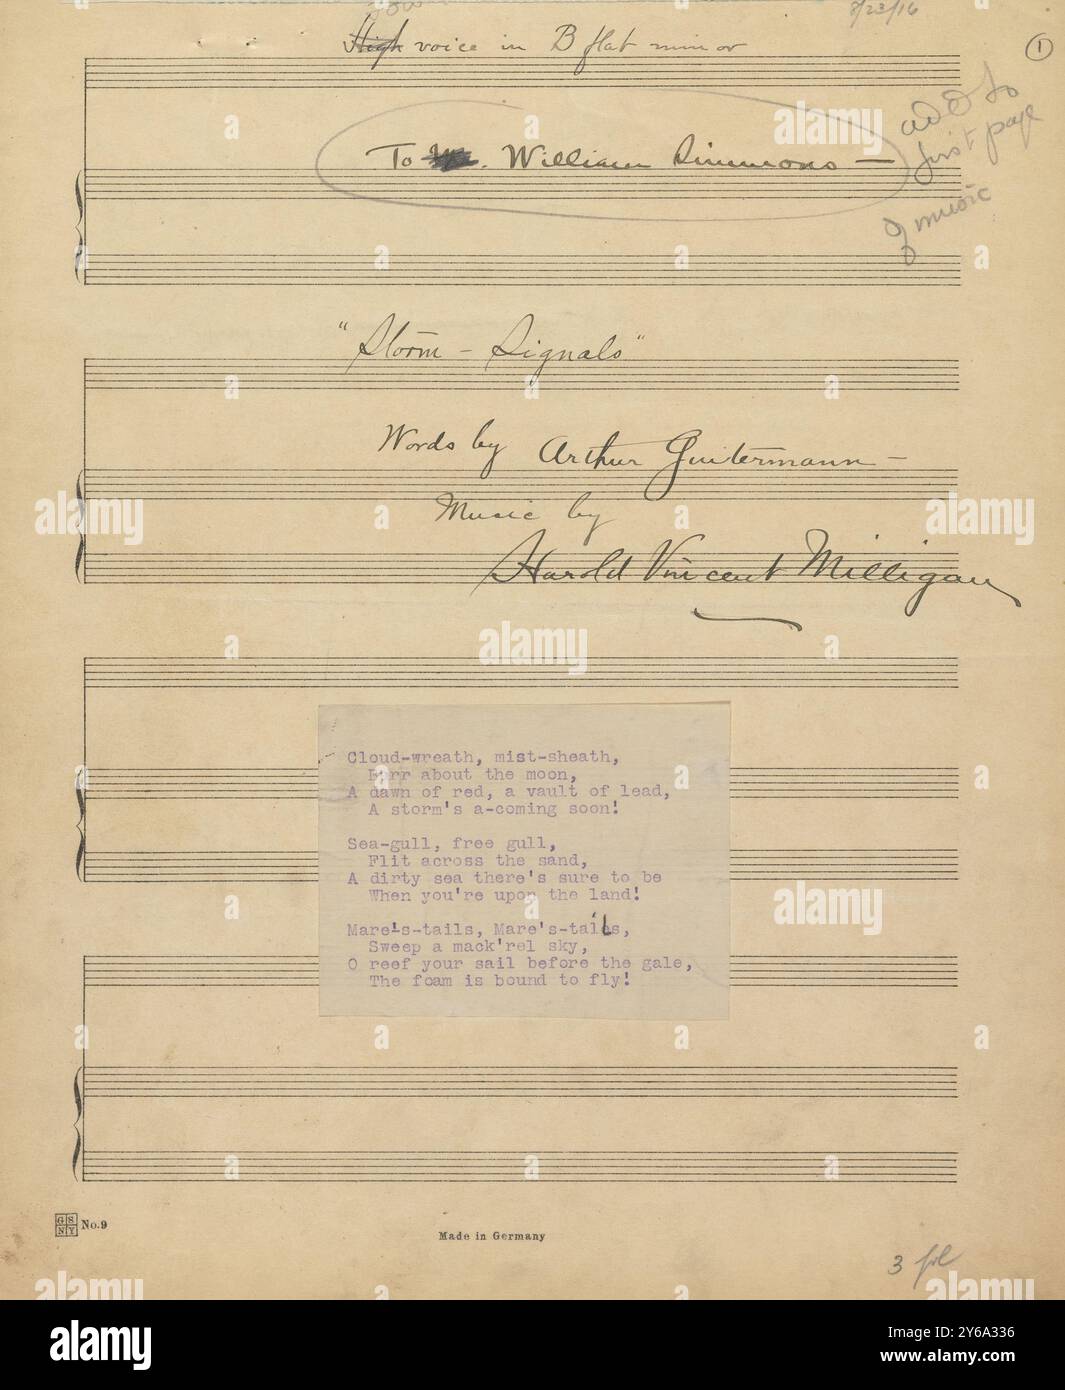 8/23/16
High voice in B flat minor
1
To Mr. William Simmons —
add to
first page
of music
"Storm - Signals"
Words by Arthur Guitermann —
Music by
Harold Vincent Milligan
Cloud-wreath, mist-sheath,
Burr about the moon,
A dawn of red, a vault of lead,
A storm's a-coming soon!
Sea-gull, free gull,
Flit across the sand,
A dirty sea there's sure to be
When you're upon the land!
Mare's-tails, Mare's-tails,
Sweep a mack'rel sky,
O reef your sail before the gale,
The foam is bound to fly!
GS
NY
No.9
Made in Germany
3
alamy
Image ID: 2Y6A336
www.alamy.com